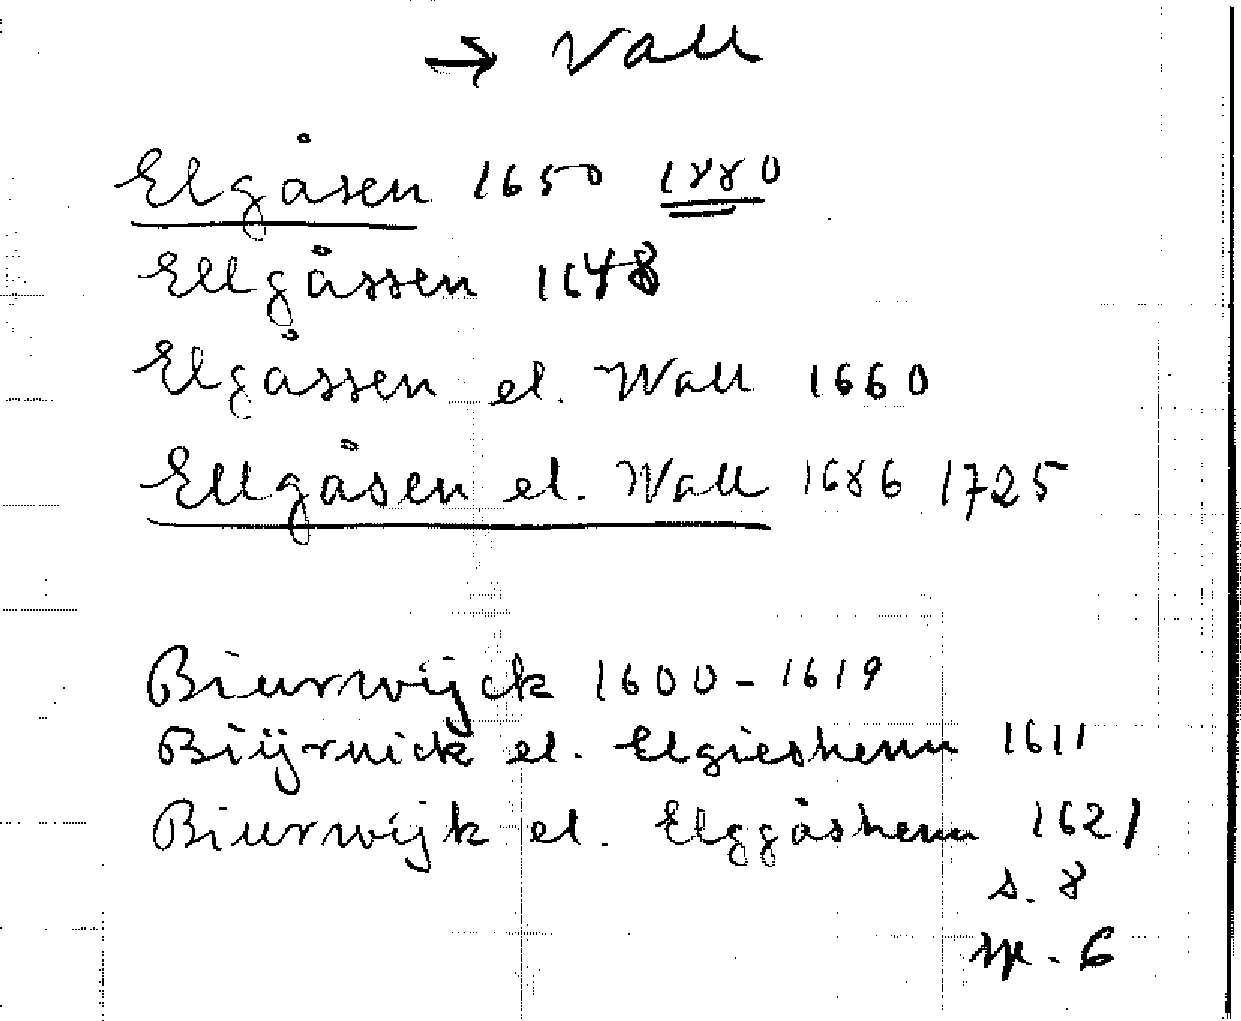 → Vall
Elgåsen 1650 1880
Ellgåssen 1648
Elgåssen el. Wall 1660
Ellgåsen el. Wall 1686 1725
Biurwijck 1600-1619
Biÿrnick el. Elgieshenn 1611
Biurwijk el. Elggåshenn 1621
s. 8
sp. 6